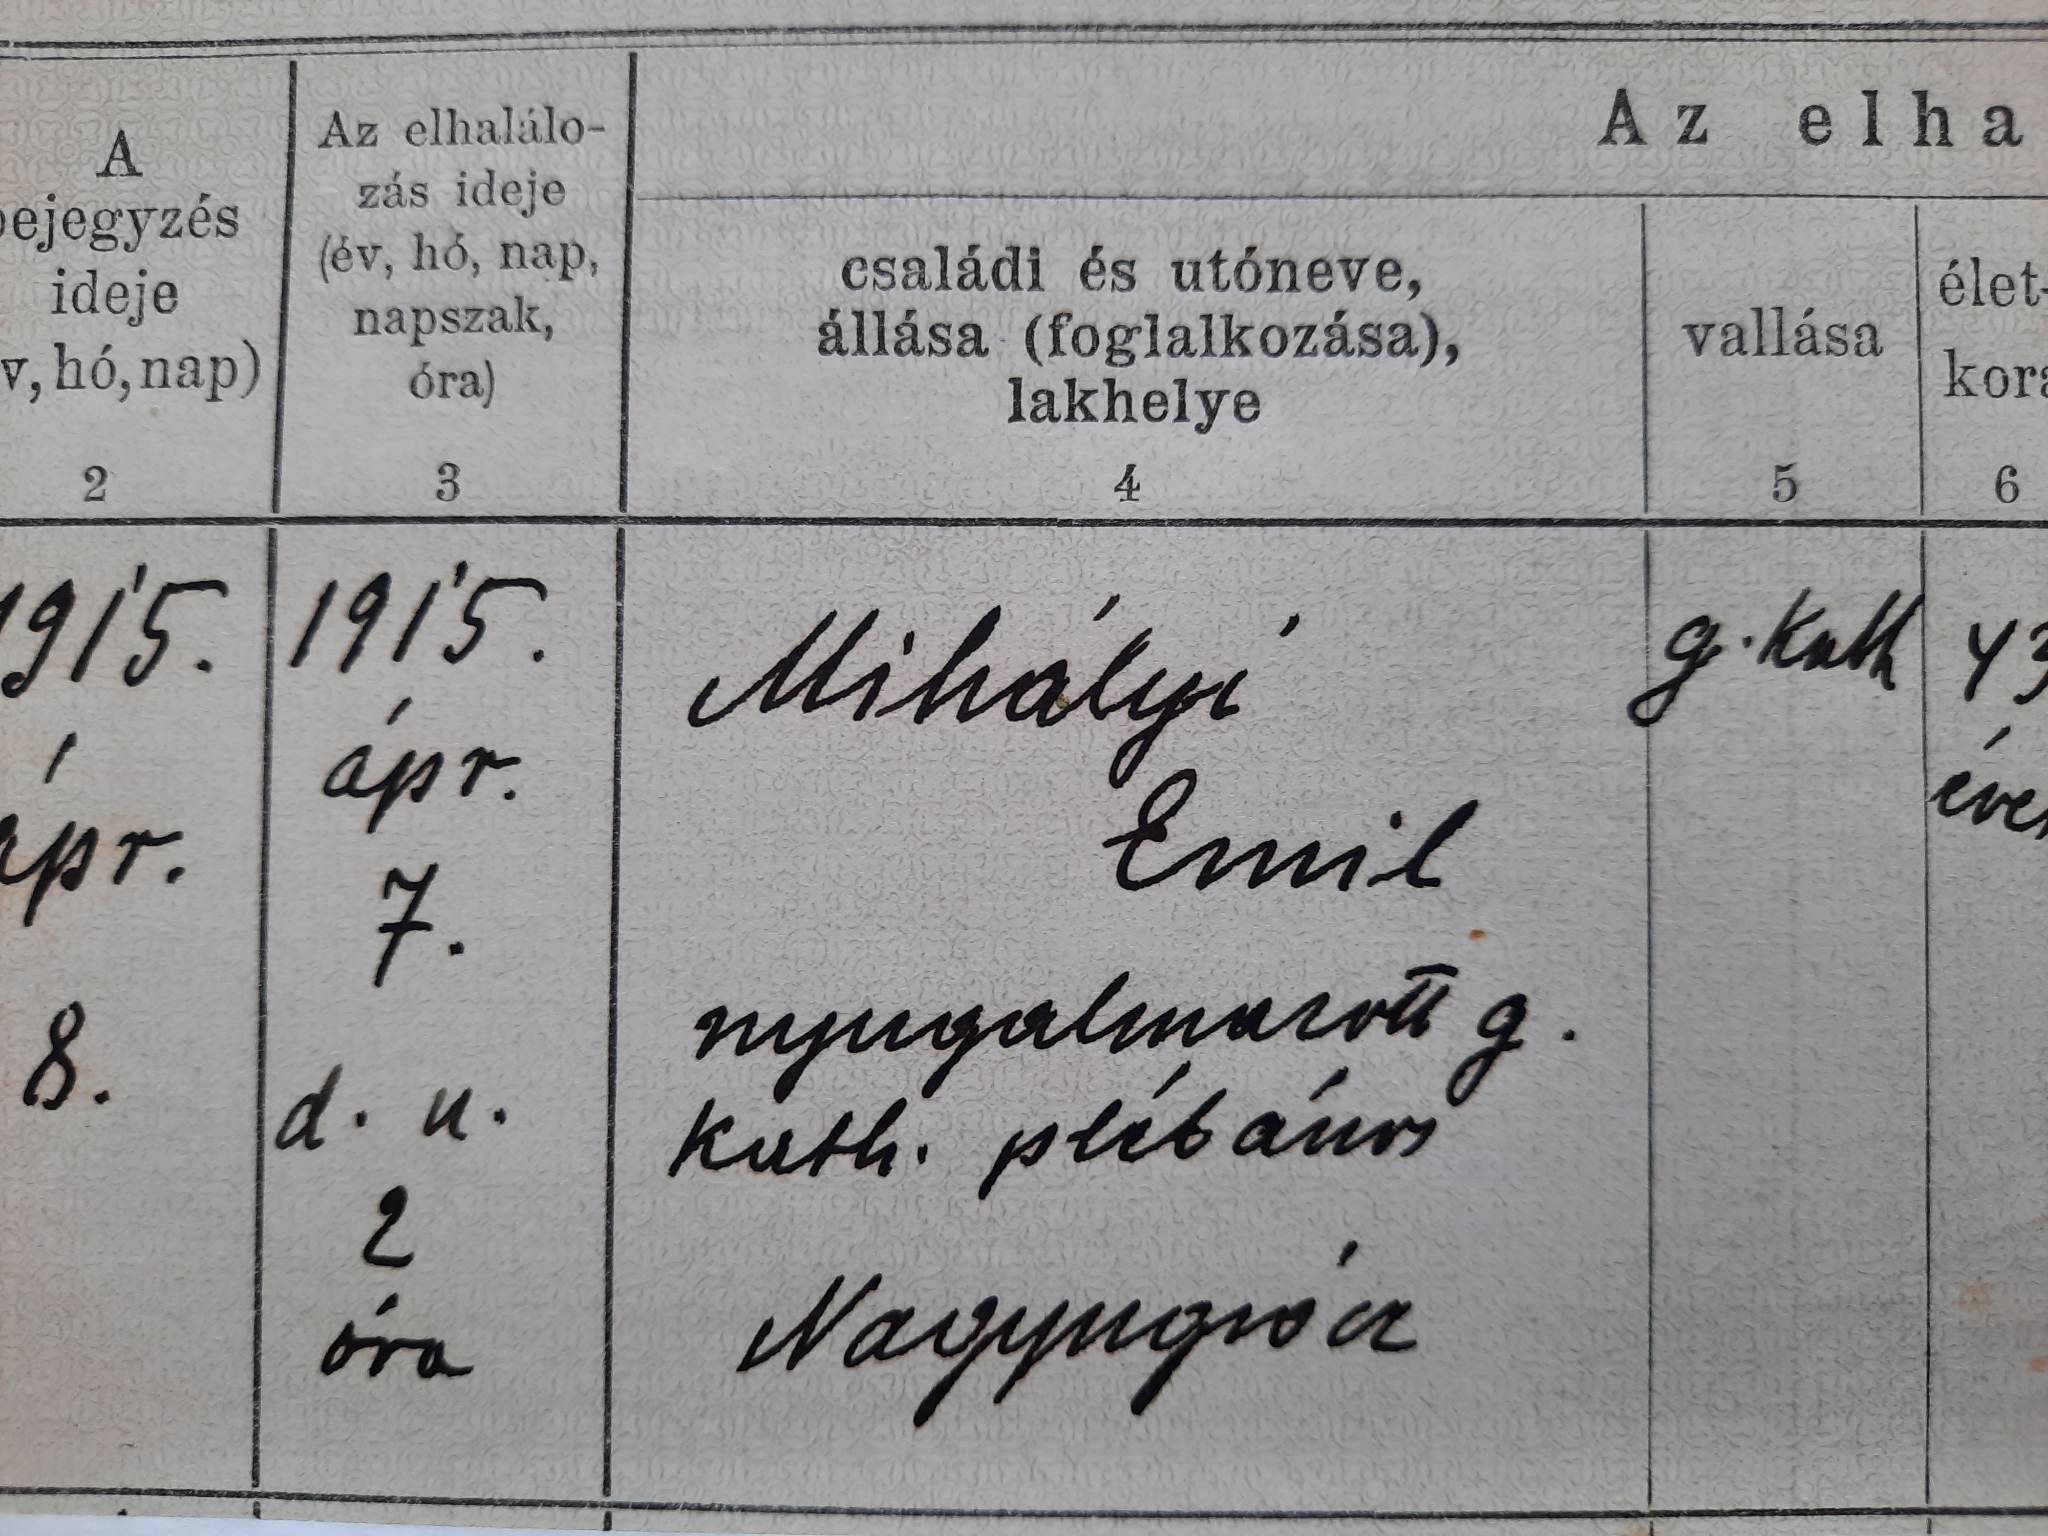 A
bejegyzés
ideje
v, hó, nap)
2
Az elhalálo-
zás ideje
(év, hó, nap,
napszak,
óra)
3
Az elha
családi és utóneve,
állása (foglalkozása),
lakhelye
4
vallása
5
élet-
kora
6
1915.
ápr.
8.
1915.
ápr.
7.
d. u.
2
óra
Mihályi
Emil
nyugalmazott g.
kath. plébános
g. kath
43
éves